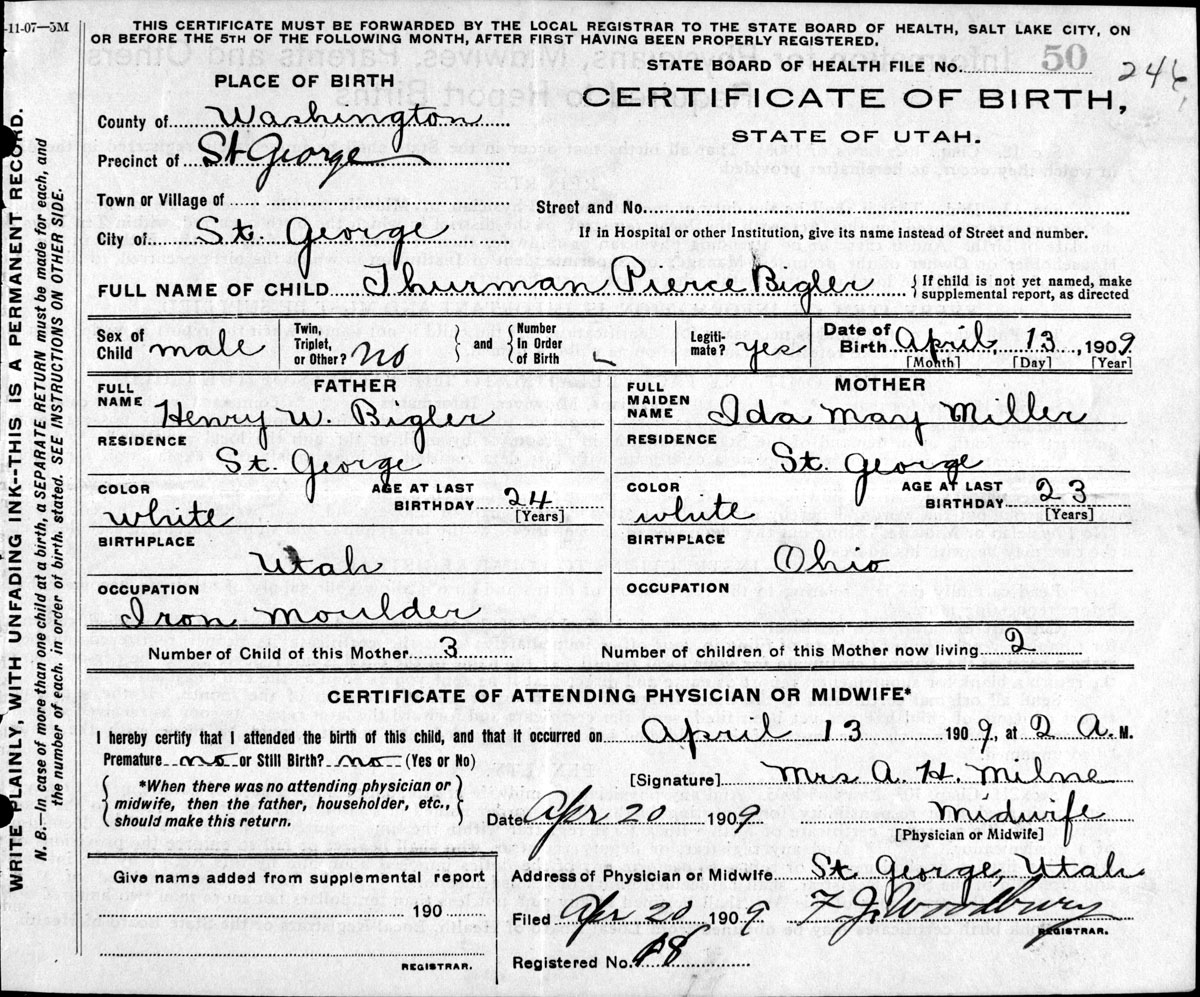 -11-07—5M
THIS CERTIFICATE MUST BE FORWARDED BY THE LOCAL REGISTRAR TO THE STATE BOARD OF HEALTH, SALT LAKE CITY, ON
OR BEFORE THE 5TH OF THE FOLLOWING MONTH, AFTER FIRST HAVING BEEN PROPERLY REGISTERED.
STATE BOARD OF HEALTH FILE No. 50 246
PLACE OF BIRTH
CERTIFICATE OF BIRTH,
STATE OF UTAH.
County of Washington
Precinct of St George
Town or Village of
Street and No.
City of St. George
If in Hospital or other Institution, give its name instead of Street and number.
FULL NAME OF CHILD Thurman Pierce Bigler { If child is not yet named, make supplemental report, as directed
Sex of Child male Twin, Triplet, or Other? no } and { Number In Order of Birth Legiti- mate? yes. Date of Birth April 13, 1909
[Month] [Day] [Year]
FATHER
FULL NAME Henry W. Bigler
RESIDENCE
St. George
COLOR white AGE AT LAST BIRTHDAY 24
[Years]
BIRTHPLACE
Utah
OCCUPATION
Iron Moulder
MOTHER
FULL MAIDEN NAME Ida May Miller
RESIDENCE
St. George
COLOR white AGE AT LAST BIRTHDAY 23
[Years]
BIRTHPLACE
Ohio
OCCUPATION
Number of Child of this Mother 3 Number of children of this Mother now living 2
CERTIFICATE OF ATTENDING PHYSICIAN OR MIDWIFE*
I hereby certify that I attended the birth of this child, and that it occurred on April 13 1909, at 2 A. M.
Premature no or Still Birth? no (Yes or No)
[Signature] Mrs A. H. Milne
{ *When there was no attending physician or midwife, then the father, householder, etc., should make this return. }
Date Apr 20 1909. Midwife
[Physician or Midwife]
Give name added from supplemental report
190
REGISTRAR.
Address of Physician or Midwife St. George, Utah
Filed Apr 20, 1909 F. J. Woodbury
REGISTRAR.
Registered No. 18
WRITE PLAINLY, WITH UNFADING INK--THIS IS A PERMANENT RECORD.
N. B.—In case of more than one child at a birth, a SEPARATE RETURN must be made for each, and
the number of each, in order of birth, stated. SEE INSTRUCTIONS ON OTHER SIDE.